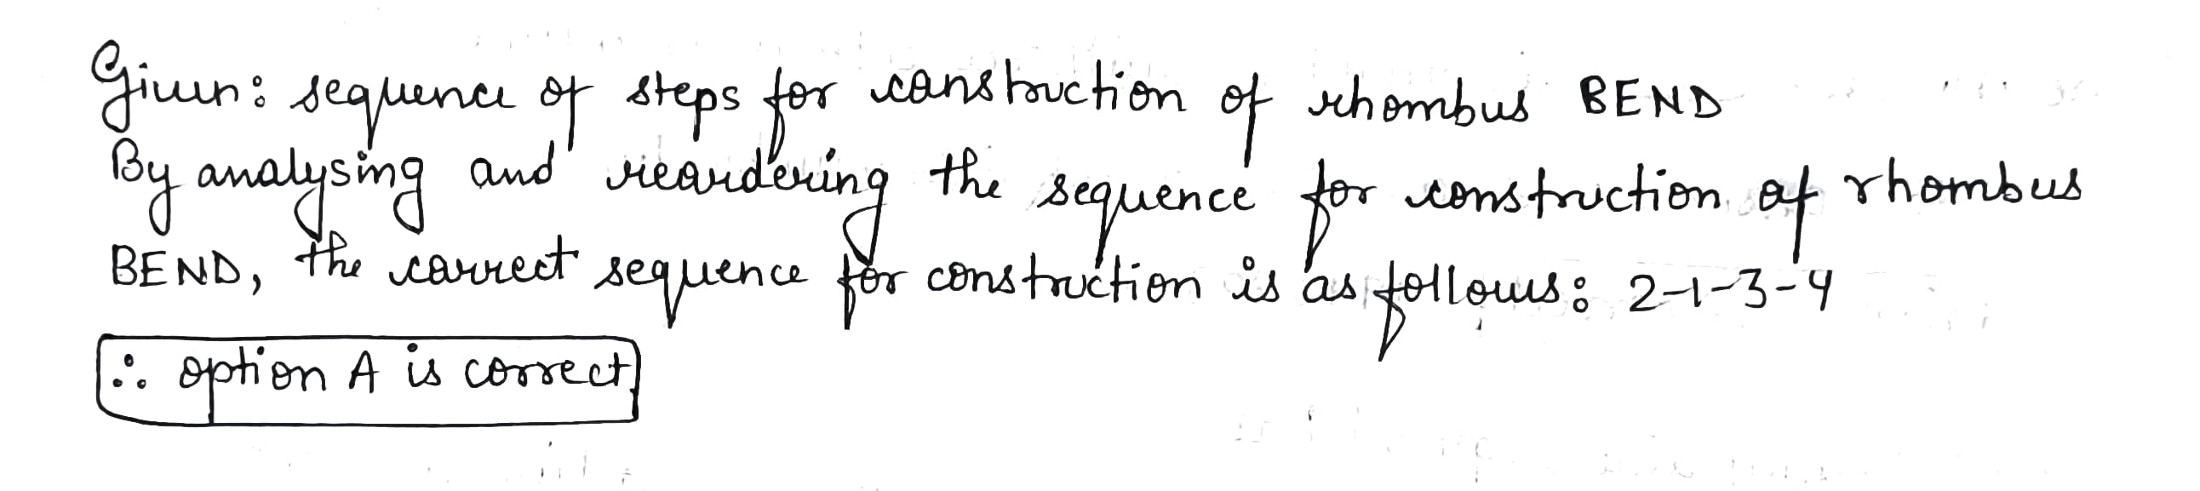 Given: sequence of steps for construction of rhombus BEND
By analysing and reordering the sequence for construction of rhombus
BEND, the correct sequence for construction is as follows: 2-1-3-4
∴ option A is correct